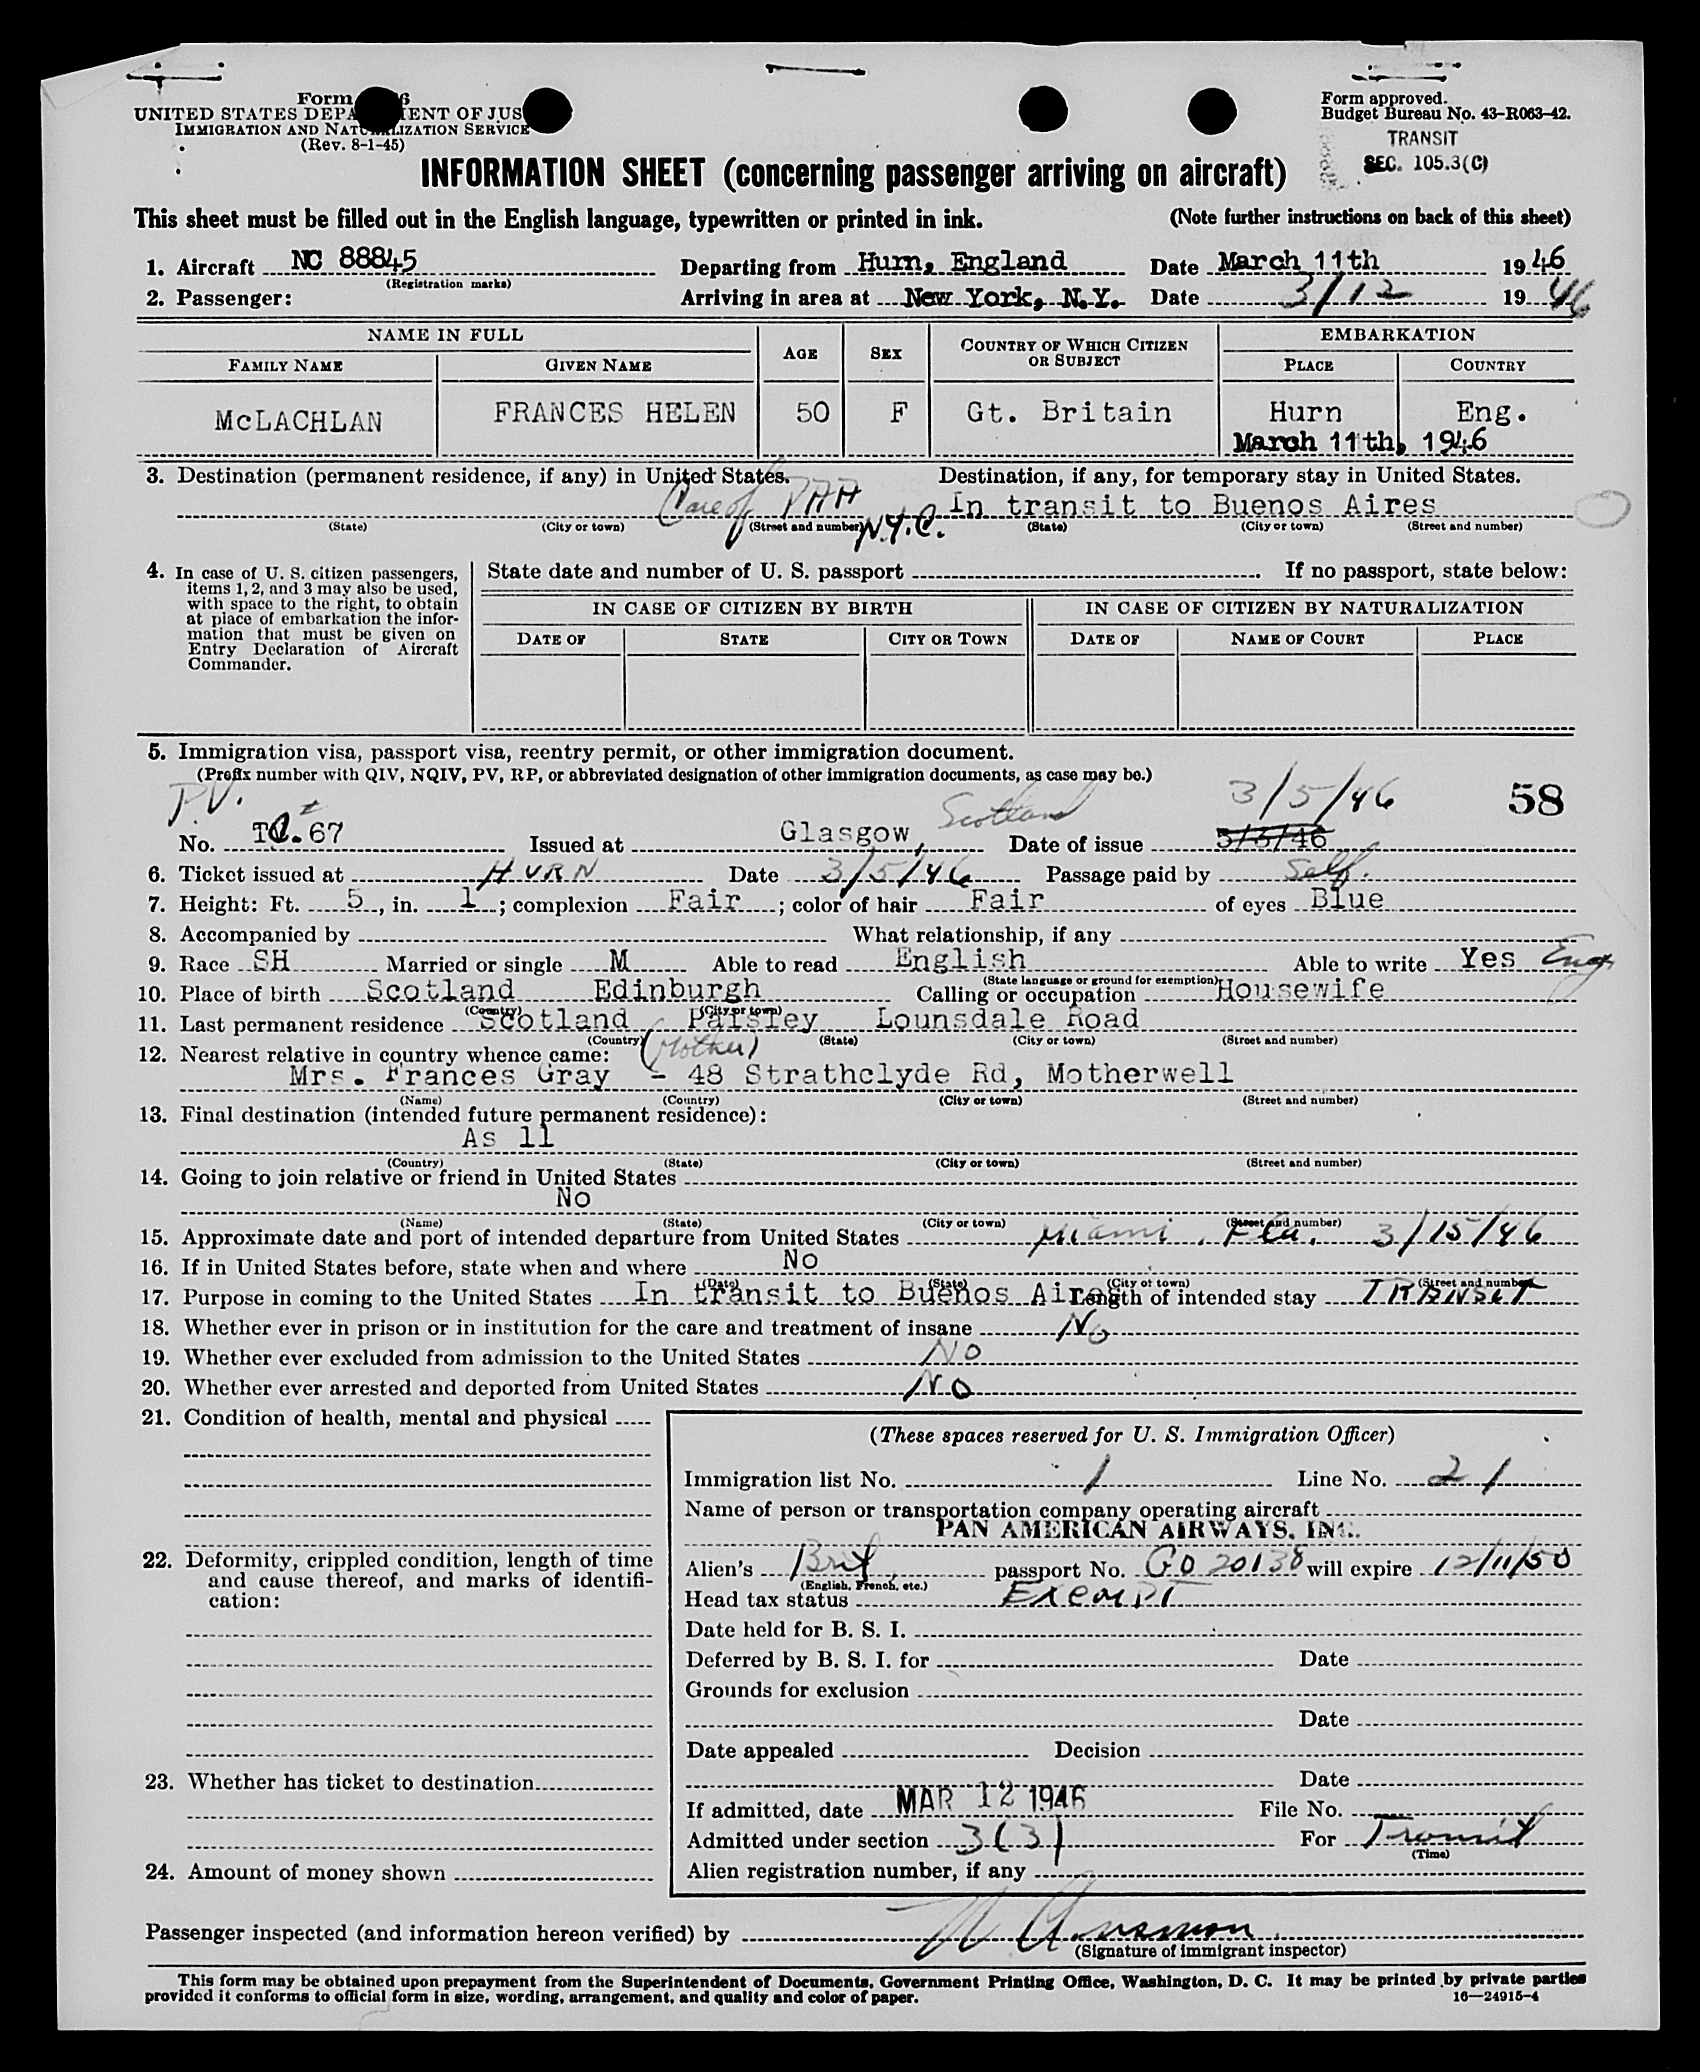 Form 6
UNITED STATES DEPA ENT OF JUS
IMMIGRATION AND NATURALIZATION SERVICE
(Rev. 8-1-45)
Form approved.
Budget Bureau No. 43-R063-42.
TRANSIT
SEC. 105.3(C)
INFORMATION SHEET (concerning passenger arriving on aircraft)
This sheet must be filled out in the English language, typewritten or printed in ink. (Note further instructions on back of this sheet)
1. Aircraft NC 88845 Departing from Hurn, England Date March 11th 1946
(Registration marks)
2. Passenger: Arriving in area at New York, N.Y. Date 3/12 1946
NAME IN FULL AGE SEX COUNTRY OF WHICH CITIZEN OR SUBJECT EMBARKATION
FAMILY NAME GIVEN NAME PLACE COUNTRY
McLACHLAN FRANCES HELEN 50 F Gt. Britain Hurn Eng.
March 11th, 1946
3. Destination (permanent residence, if any) in United States. Destination, if any, for temporary stay in United States.
Care of PAA In transit to Buenos Aires
(State) (City or town) (Street and number) N.Y.C. (State) (City or town) (Street and number)
4. In case of U. S. citizen passengers, items 1, 2, and 3 may also be used, with space to the right, to obtain at place of embarkation the information that must be given on Entry Declaration of Aircraft Commander.
State date and number of U. S. passport . If no passport, state below:
IN CASE OF CITIZEN BY BIRTH IN CASE OF CITIZEN BY NATURALIZATION
DATE OF STATE CITY OR TOWN DATE OF NAME OF COURT PLACE
5. Immigration visa, passport visa, reentry permit, or other immigration document.
(Prefix number with QIV, NQIV, PV, RP, or abbreviated designation of other immigration documents, as case may be.)
P.V. Scotland 3/5/46 58
No. 67 Issued at Glasgow, Date of issue 5/3/46
6. Ticket issued at HURN Date 3/5/46 Passage paid by Self.
7. Height: Ft. 5, in. 1; complexion Fair; color of hair Fair of eyes Blue
8. Accompanied by What relationship, if any
9. Race SH Married or single M Able to read English Able to write Yes Eng
(State language or ground for exemption)
10. Place of birth Scotland Edinburgh Calling or occupation Housewife
(Country) (City or town)
11. Last permanent residence Scotland Paisley Lounsdale Road
(Country) (State) (City or town) (Street and number)
12. Nearest relative in country whence came: (Mother)
Mrs. Frances Gray - 48 Strathclyde Rd, Motherwell
(Name) (Country) (City or town) (Street and number)
13. Final destination (intended future permanent residence):
As 11
(Country) (State) (City or town) (Street and number)
14. Going to join relative or friend in United States
No
(Name) (State) (City or town) (Street and number)
15. Approximate date and port of intended departure from United States Miami, Fla. 3/15/46
16. If in United States before, state when and where No
(Date) (State) (City or town) (Street and number)
17. Purpose in coming to the United States In transit to Buenos Aires Length of intended stay TRANSIT
18. Whether ever in prison or in institution for the care and treatment of insane No
19. Whether ever excluded from admission to the United States NO
20. Whether ever arrested and deported from United States NO
21. Condition of health, mental and physical
22. Deformity, crippled condition, length of time and cause thereof, and marks of identification:
23. Whether has ticket to destination
24. Amount of money shown
(These spaces reserved for U. S. Immigration Officer)
Immigration list No. 1 Line No. 21
Name of person or transportation company operating aircraft
PAN AMERICAN AIRWAYS, INC.
Alien's Brit. passport No. CO 20138 will expire 12/11/50
(English, French, etc.)
Head tax status Exempt
Date held for B. S. I.
Deferred by B. S. I. for Date
Grounds for exclusion
Date
Date appealed Decision
Date
If admitted, date MAR 12 1946 File No.
Admitted under section 3(3) For Transit
(Time)
Alien registration number, if any
Passenger inspected (and information hereon verified) by
(Signature of immigrant inspector)
This form may be obtained upon prepayment from the Superintendent of Documents, Government Printing Office, Washington, D. C. It may be printed by private parties
provided it conforms to official form in size, wording, arrangement, and quality and color of paper. 16—24915-4